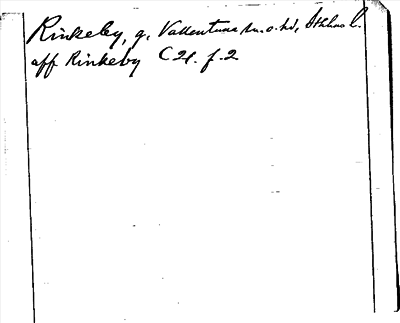 Rinkeby, g, Vallentuna sn. o. hd, Sthlms l.
aff Rinkeby C 21. f. 2